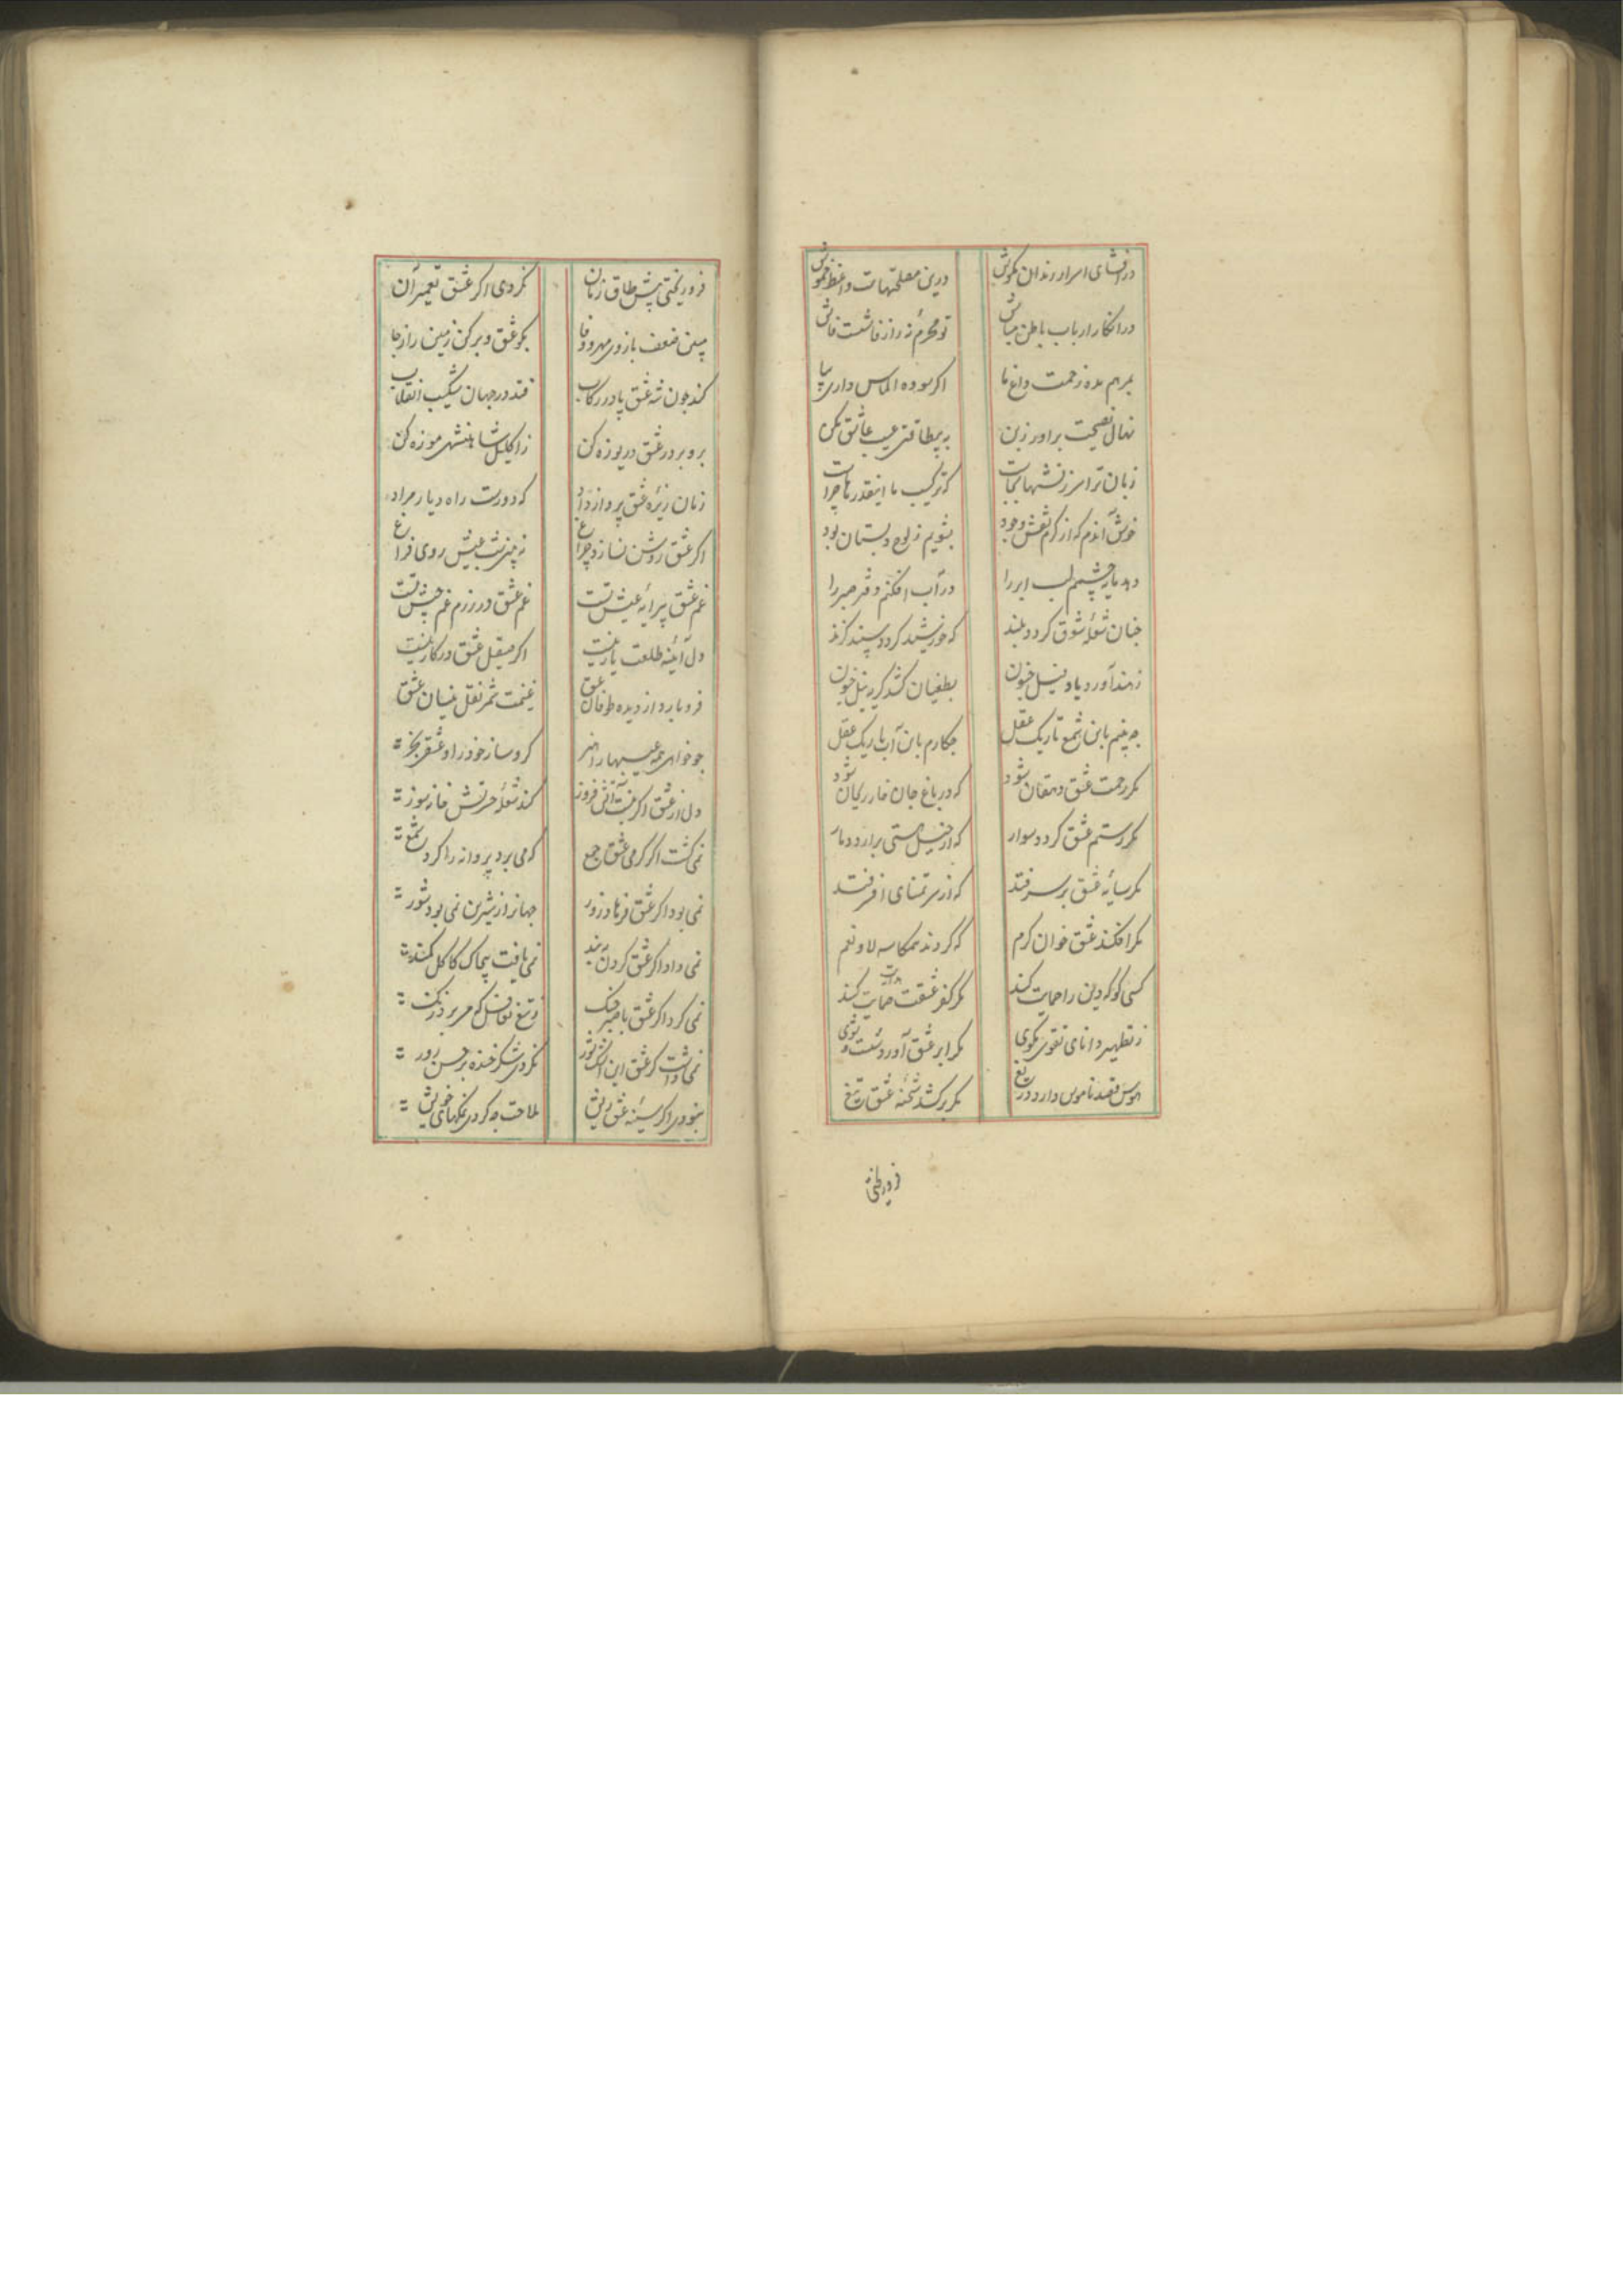 در افشای اسرار رندان مکوش درین مصلحتهاست واعظ خموش
در انکار ارباب باطن مباش تو محرم نه راز فاشست فاش
بمرهم مده زحمت داغ ما اگر سوده الماس داری بیا
نهال نصیحت براور ز بن به بیطاقتی عیب عاشق مکن
زبان ترا سرزنشها بجاست که ترکیب ما اینقدرها چراست
خوش آندم که از کرم نقش وجود بشویم ز لوح دبستان بود
دهد مایه چشمم لب ابر را در آب افکنم دفتر صبر را
چنان شعلهٔ شوق گردد بلند که خورشید گردد سپند گزند
ز مد آورد یاد نیل جنون بطغیان کشد گریه نیل خون
چه بینم باین شمع تاریک عقل چکارم باین آب باریک عقل
مگر رحمت عشق دهقان شود که در باغ جان خار ریحان شود
مگر رستم عشق گردد سوار که از خیل هستی برارد دمار
مگر سایهٔ عشق بر سر فتد که از سر تمنای افسر فتد
مگر افکند عشق خوان کرم که گردند همکاسه لا و نعم
کسی کو که دین را حمایت کند مگر کفر عشقت حمایت کند
ز تطهیر دانای تقوی مگوی مگر ابر عشق آورد شست و شوی
هوس قصد ناموس دارد دریغ مگر برکشد شحنهٔ عشق تیغ
فرو ریختی
فرو ریختی پیش طاق زمان نکردی اگر عشق تعمیر آن
مبین ضعف بازوی مهر و وفا بگو عشق و برکن زمین را ز جا
کند چون شه عشق پا در رکاب فتد در جهان شکیب انقلاب
برو بر در عشق دریوزه کن ز اکلیل شاهنشهی موزه کن
که دورست راه دیار مراد
اگر عشق روشن نسازد چراغ نه بینی شب عیش روی فراغ
غم عشق پیرایهٔ عیش تست غم عشق در رزم غم جیش تست
دل آئینه طلعت یار نیست اگر صیقل عشق در کار نیست
فرو بارد از دیده طوفان عشق غنیمت شمر نقل نیسان عشق
چو خواهی همه عیبها را هنر گرو ساز خود را و عشقی بخر
دل از عشق اگر نیست آتش فروز کند شعلهٔ حرتش خانه سوز
نمی گشت اگر گرمی عشق جمع که می برد پروانه را گرد شمع
نمی بود اگر عشق فرهاد زور جهانرا ز شیرین نمی بود شور
نمی داد اگر عشق گردن به بند نمی یافت پیچاک کاکل کمند
نمی کرد اگر عشق با صبر جنگ ز تیغ تغافل که می برد زنگ
نمی داشت گر عشق این نکردی شکر خنده بر حسن زور
نبودی اگر سینهٔ عشق ریش ملاحت چه کردی نمکهای خویش